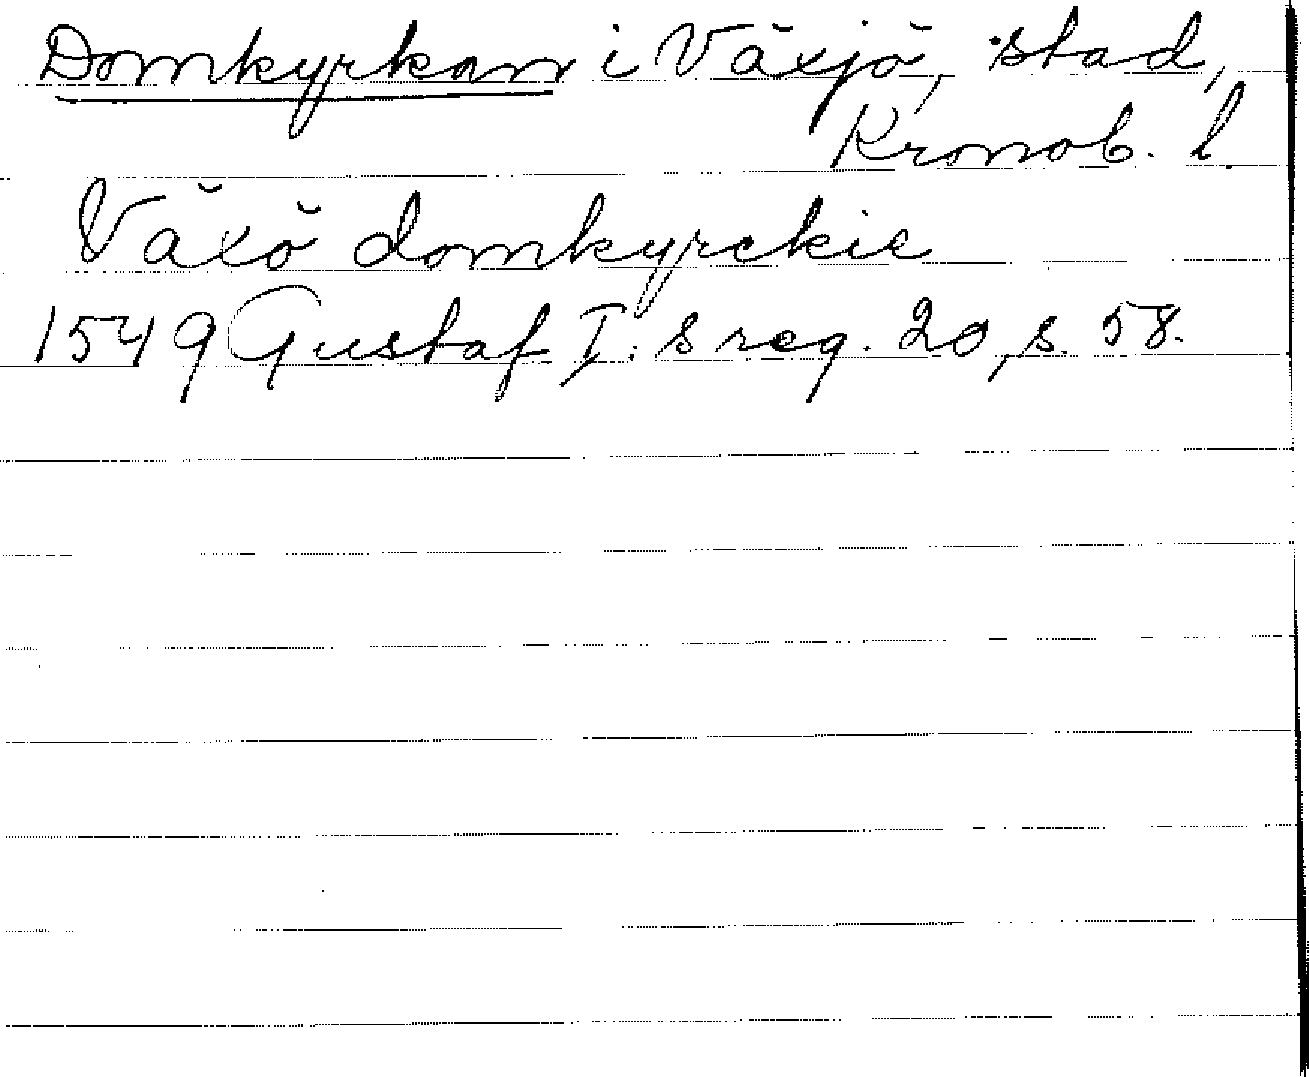 Domkyrkan i Växjö, stad,
Kronob. l.
Växö domkyrckie
1549 Gustaf I:s reg. 20, s. 58.